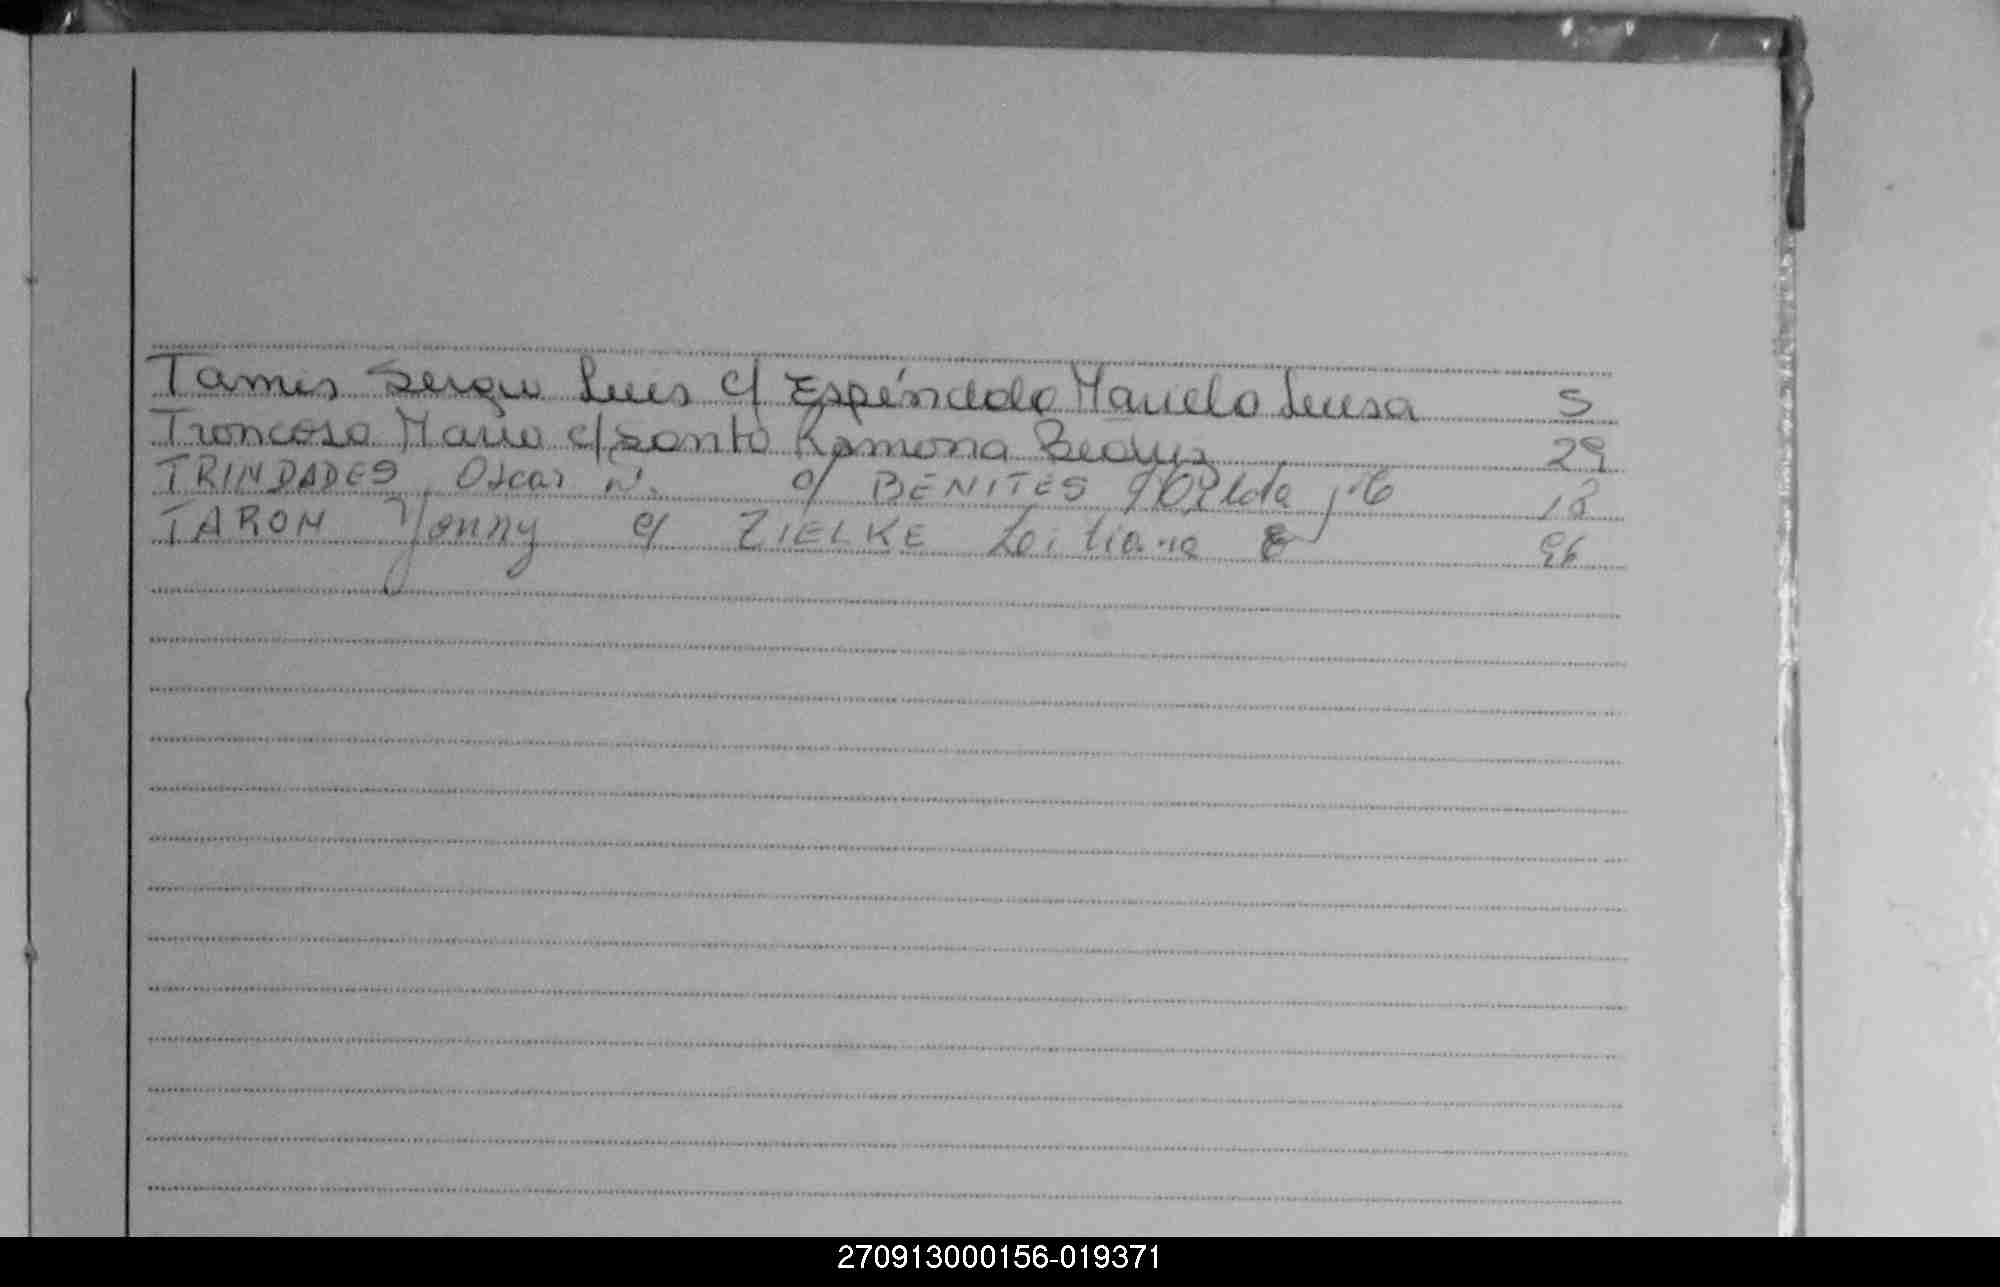 Tamis Sergio Luis c/ Espéndolo Mariela Luisa 5
Troncoso Mario c/ Santo Ramona Beatriz 29
TRINDADES Oscar N. c/ BENITES 18
TARON Yonny c/ ZIELKE Leiliane E 96
270913000156-019371